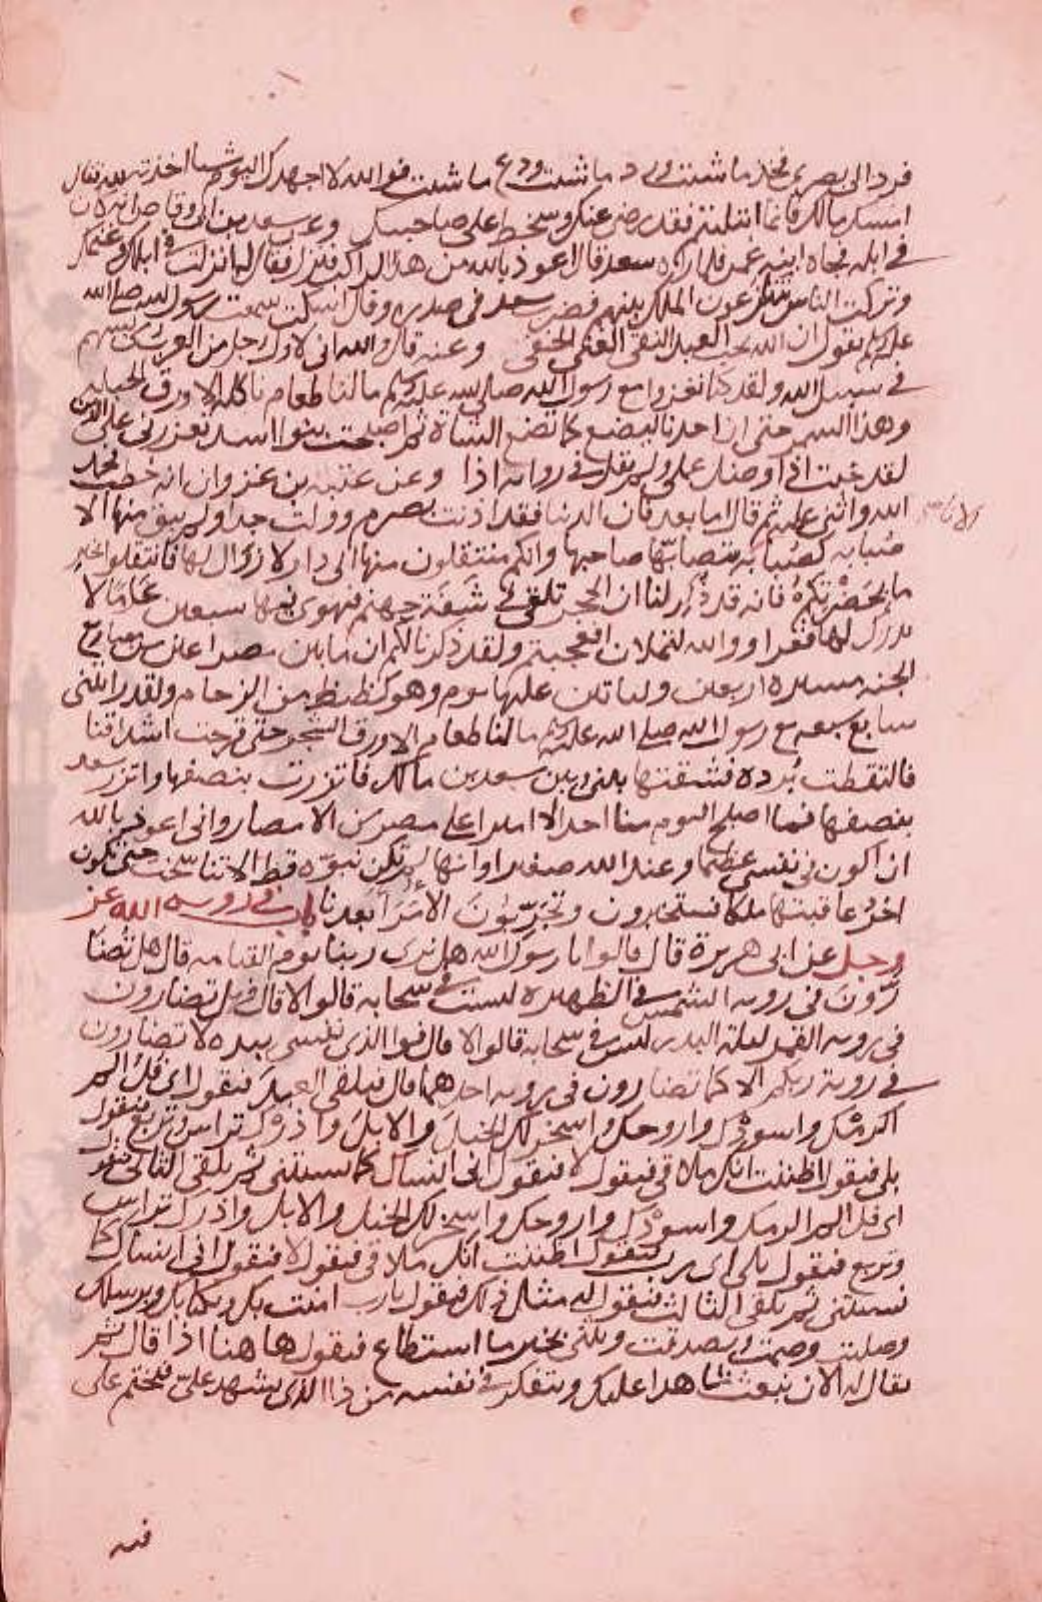 فرد الى بصري فخذ ما شئت ودع ما شئت فوالله لا اجهدك اليوم شيا اخذته لله فقال
امسك مالك فانما ابتليتم فقد رضي عنك وسخط على صاحبيك وعن سعد بن ابي وقاص انه كان
في ابله فجاه ابنه عمر فلما راه سعد قال اعوذ بالله من هذا الراكب فنزل فقال له انزلت في ابلك وغنمك
وتركت الناس يتنازعون الملك بينهم فضرب سعد في صدره وقال اسكت سمعت رسول الله صلى الله
عليه وسلم يقول ان الله يحب العبد التقي الغني الخفي وعنه قال والله اني لاول رجل من العرب رمى بسهم
في سبيل الله ولقد كنا نغزوا مع رسول الله صلى الله عليه وسلم ما لنا طعام ناكله الا ورق الحبلة
وهذا السمر حتى ان احدنا ليضع كما تضع الشاة ثم اصبحت بنوا اسد تعزرني على الدين
لقد خبت اذا وضل عملي ولم يقل في رواية اذا وعن عتبة بن غزوان انه خطب فحمد
الله واثنى عليه ثم قال اما بعد فان الدنيا فقد اذنت بصرم وولت حذا ولم يبق منها الا
صبابه كصبابة يتصابها صاحبها وانكم منتقلون منها الى دار لا زوال لها فانتقلوا بخير
ما بحضرتكم فانه قد ذكر لنا ان الحجر تلقى في شفة جهنم فيهوي فيها سبعين عاما لا
يدرك لها قعرا ووالله لتملان افعجبتم ولقد ذكر لنا ان ما بين مصراعين من مصاريع
الجنه مسيرة اربعين ولياتين عليها يوم وهو كظيظ من الزحام ولقد رايتني
سابع سبعه مع رسول الله صلى الله عليه وسلم ما لنا طعام الا ورق الشجر حتى قرحت اشداقنا
فالتقطت بردة فشققتها بيني وبين سعد بن مالك فاتزرت بنصفها واتزر سعد
بنصفها فما اصبح اليوم منا احد الا اميرا على مصر من الامصار واني اعوذ بالله
ان اكون في نفسي عظيما وعند الله صغيرا وانها لم تكن نبوة قط الا تناسخت حتى تكون
اخر عاقبتها ملكا فستخبرون وتجربون الامرا بعدنا باب في رويه الله عز
وجل عن ابي هريرة قال قالوا يا رسول الله هل نرى ربنا يوم القيامه قال هل تضا
رون في رويه الشمس في الظهيرة ليست في سحابه قالوا لا قال فهل تضارون
في رويه القمر ليلة البدر ليس في سحابه قالوا لا قال فوالذي نفسي بيده لا تضارون
في روية ربكم الا كما تضارون في رويه احدهما قال فيلقى العبد فيقول اي فل الم
اكرمك واسودك وازوجك واسخر لك الخيل والابل واذرك تراس وتربع فيقول
بلى فيقول اظننت انك ملاقي فيقول لا فيقول اني انساك كما نسيتني ثم يلقى الثاني فيقول
اي فل الم اكرمك واسودك وازوجك واسخر لك الخيل والابل واذرك تراس
وتربع فيقول بلى اي رب فيقول اظننت انك ملاقي فيقول لا فيقول اني انساك كما
نسيتني ثم يلقى الثالث فيقول له مثل ذلك فيقول يا رب امنت بك وبكتابك وبرسلك
وصليت وصمت وتصدقت ويثني بخير ما استطاع فيقول هاهنا اذا قال ثم
يقال له الان نبعث شاهدا عليك ويتفكر في نفسه من ذا الذي يشهد علي فيختم على
فيه